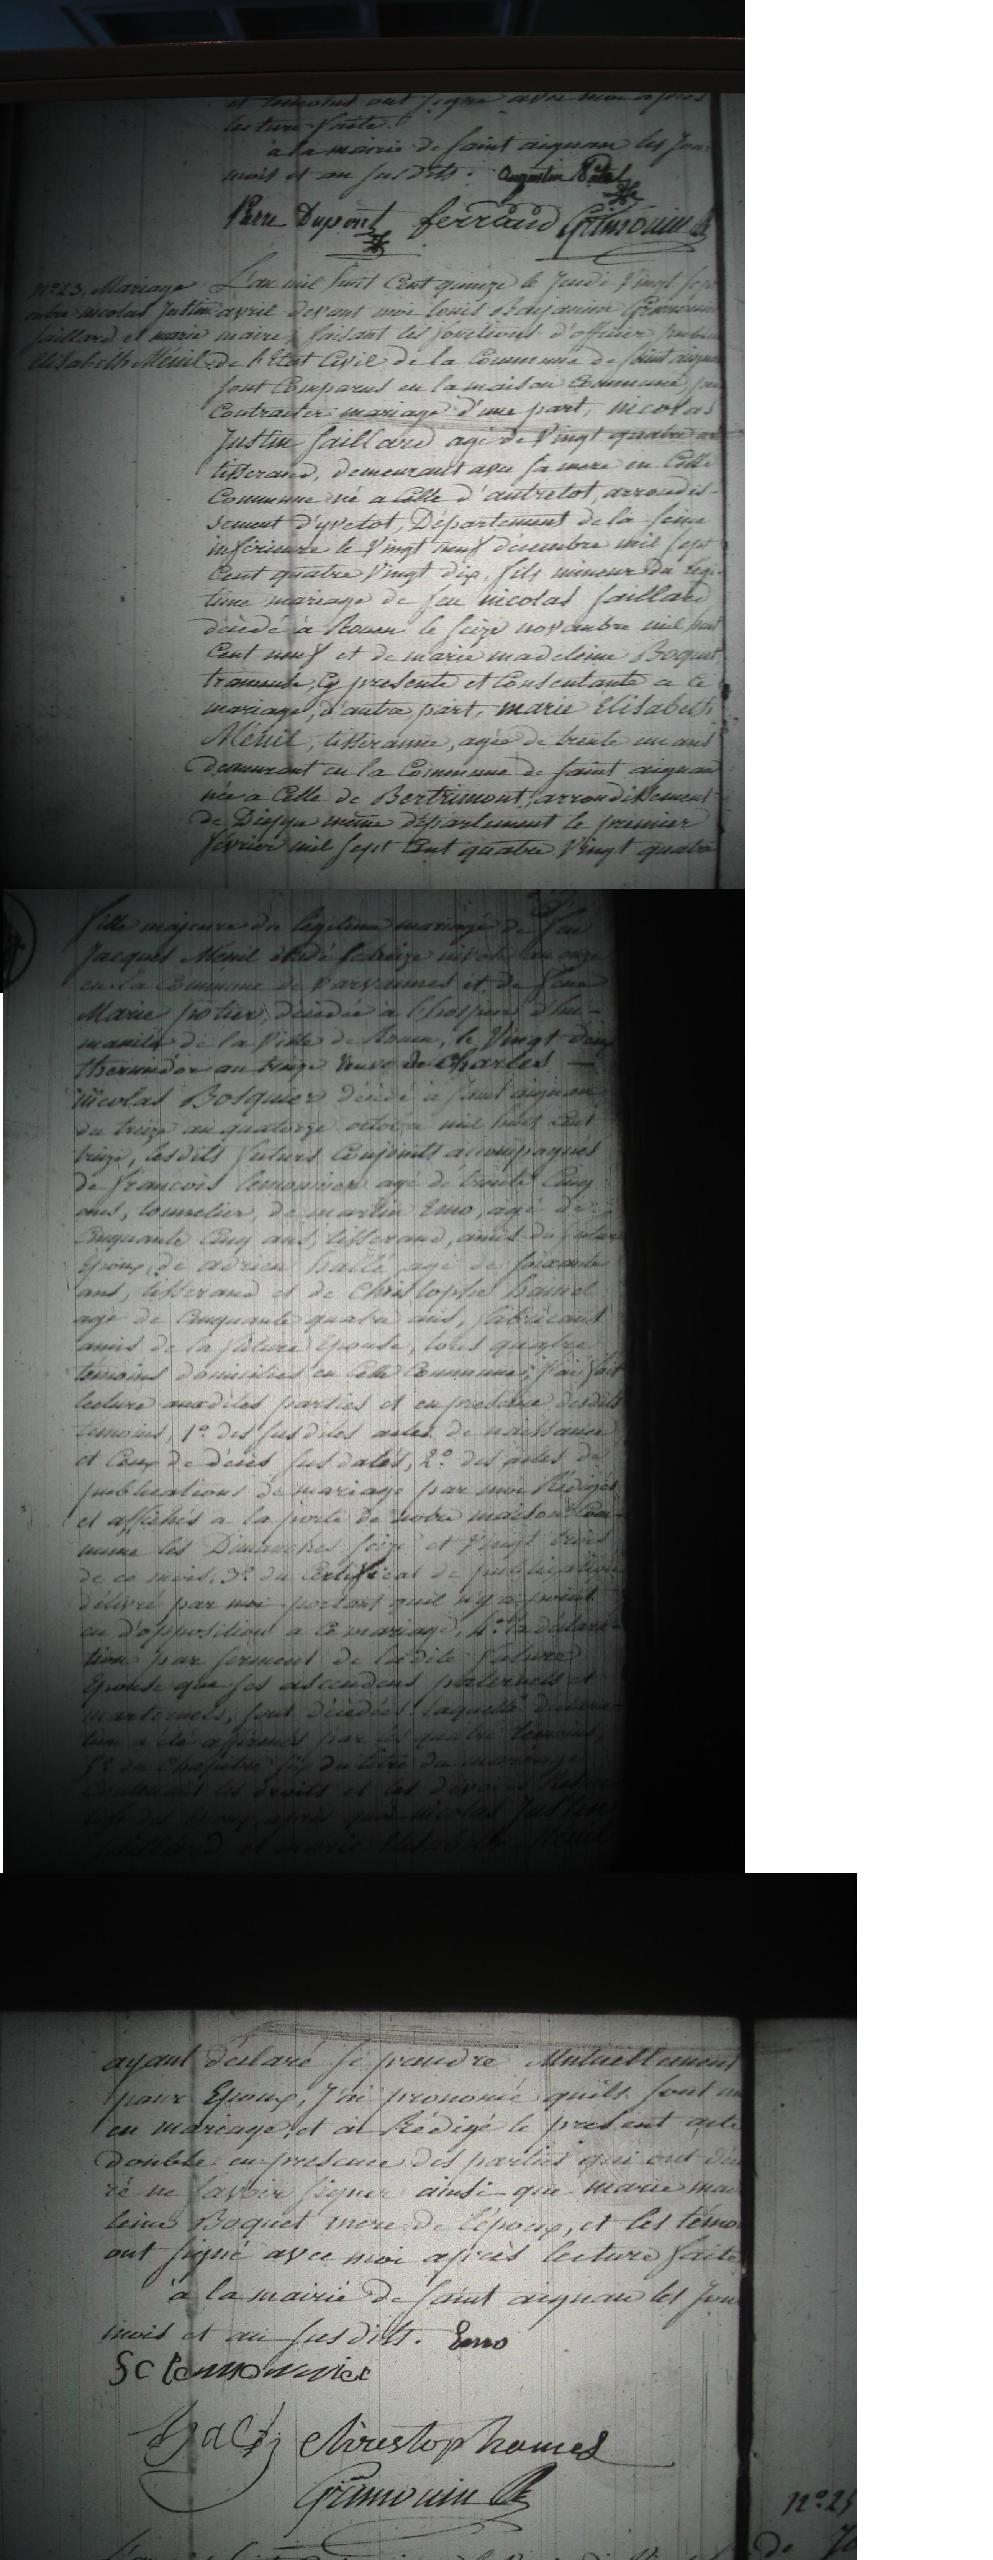 et temoins ont signé avec moi après
lecture faite.
à la mairie de saint aignan les jour
mois et an susdits. augustin
Pierre Dupont ferrand Grimouin
N° 23. Mariage
entre nicolas Justin
saillard et marie
Elisabeth Ménil.
L'an mil huit Cent quinze le Jeudi Vingt sept
avril devant moi louis Benjamin Grimouin
maire, faisant les fonctions d'officier public
de l'Etat Civil de la Commune de saint aignan
sont Comparus en la maison Commune, pour
Contracter mariage d'une part, nicolas
Justin saillard agé de Vingt quatre ans
tisserand, demeurant avec sa mere en Cette
Commune né a Celle d'autretot, arrondis-
sement d'yvetot, Département de la seine
inférieure le Vingt neuf décembre mil sept
Cent quatre Vingt dix, fils mineur du légi-
time mariage de feu nicolas saillard
décédé à Rouen le seize novembre mil huit
Cent neuf et de marie madeleine Boquet
presente et Consentante a ce
mariage, d'autre part, marie Elisabeth
Ménil, tisseranne, agée de trente un ans
demeurant en la Commune de saint aignan
née a Celle de Bertrimont, arrondissement
de Dieppe même département le premier
février mil sept Cent quatre Vingt quatre
fille majeure du légitime mariage de feu
Jacques Ménil décédé le treize nivose an onze
en la Commune de Varvannes et de feue
Marie potier, décédée à l'hospice d'hu-
manité de la Ville de Rouen, le Vingt deux
thermidor an treize Veuve de Charles
nicolas Bosquier décédé à saint aignan
du treize au quatorze octobre mil huit cent
treize, lesdits futurs Conjoints accompagnés
de francois lemonnier agé de trente Cinq
ans, tonnelier, de martin Emo, agé de
Cinquante Cinq ans, tisserand, amis du futur
Epoux, de adrien hallé agé de soixante
ans, tisserand et de Christophe hamel
agé de Cinquante quatre ans, fabricant
amis de la future Epouse, tous quatre
temoins domiciliés en Cette Commune; j'ai fait
lecture auxdites parties et en presence desdits
temoins, 1° des susdites actes de naissance
et Ceux de décès sus datés, 2° des actes de
publications de mariage par moi Rédigés
et affichés a la porte de notre maison Com-
mune les Dimanches seize et Vingt trois
de ce mois, 3° du Certificat de publication
délivré par moi portant quil n'y a point
eu d'opposition a ce mariage, 4° la déclara-
tion par serment de ladite future
Epouse que ses ascendens paternels et
marternels, sont décédés laquelle déclara-
tion a été affirmée par les quatre temoins,
5° du Chapitre six du titre du mariage
Contenant les droits et les devoirs Respec-
tifs des Epoux, après quoi nicolas Justin
saillard et marie Elisabeth Ménil
ayant déclaré se prendre Mutuellement
pour Epoux, J'ai prononcé quils sont unis
en mariage, et ai Rédigé le present acte
double en presence des parties qui ont décla
ré ne savoir signer ainsi que marie made
leine Boquet mere de l'époux, et les témoins
ont signé avec moi après lecture faite
à la mairie de saint aignan les jour
mois et an susdits. Emo
lemonnier
christop hamel
Grimouin
N° 24